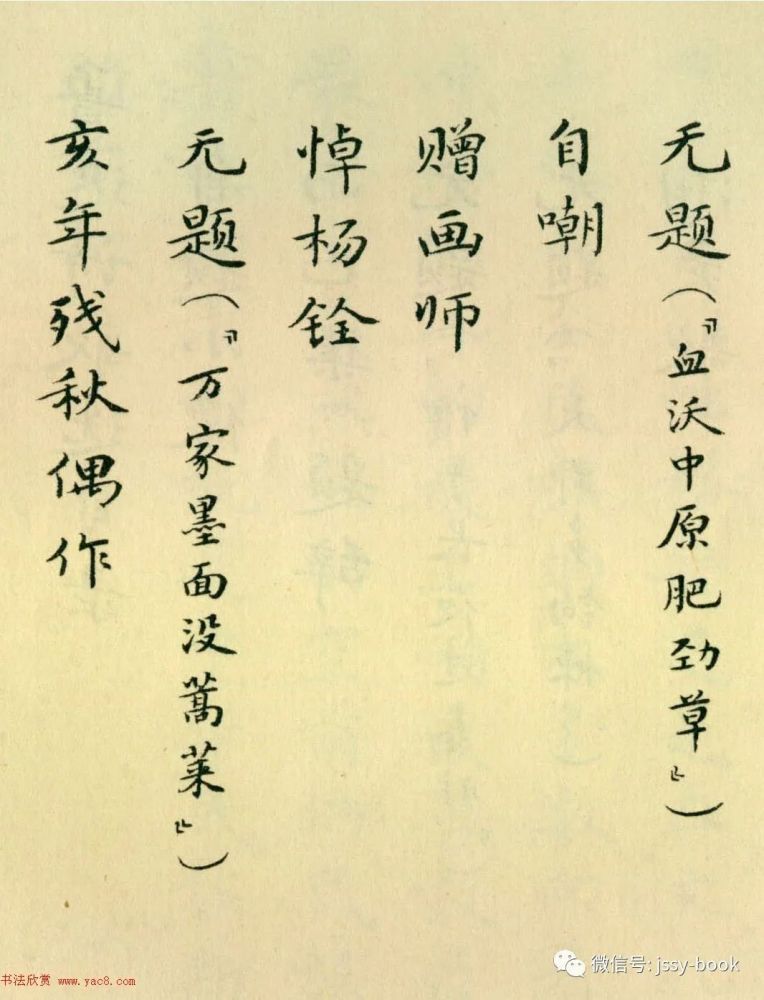 无题（『血沃中原肥劲草』）
自嘲
赠画师
悼杨铨
无题（『万家墨面没蒿莱』）
亥年残秋偶作
书法欣赏 www.yac8.com
微信号: jssy-book